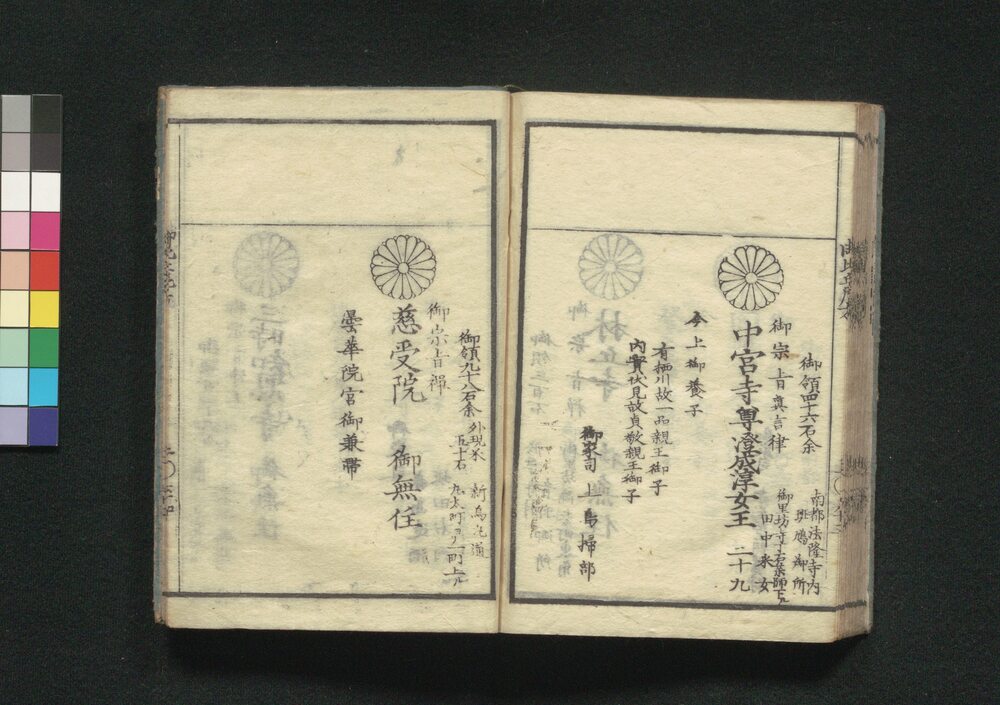 御領四十六石余
南都法隆寺内
斑鳩御所
御宗旨真言律
御里坊寺丁石薬師下ル
田中采女
中宮寺尊澄成淳女王 二十九
今上御養子
有栖川故一品親王御子
内實伏見故貞敬親王御子
御家司 上島掃部
御領九十八石余
外現米
五十石
新烏丸通
丸太町ヨリ一町上ル
御宗旨禅
慈受院 御無住
曇華院宮御兼帯